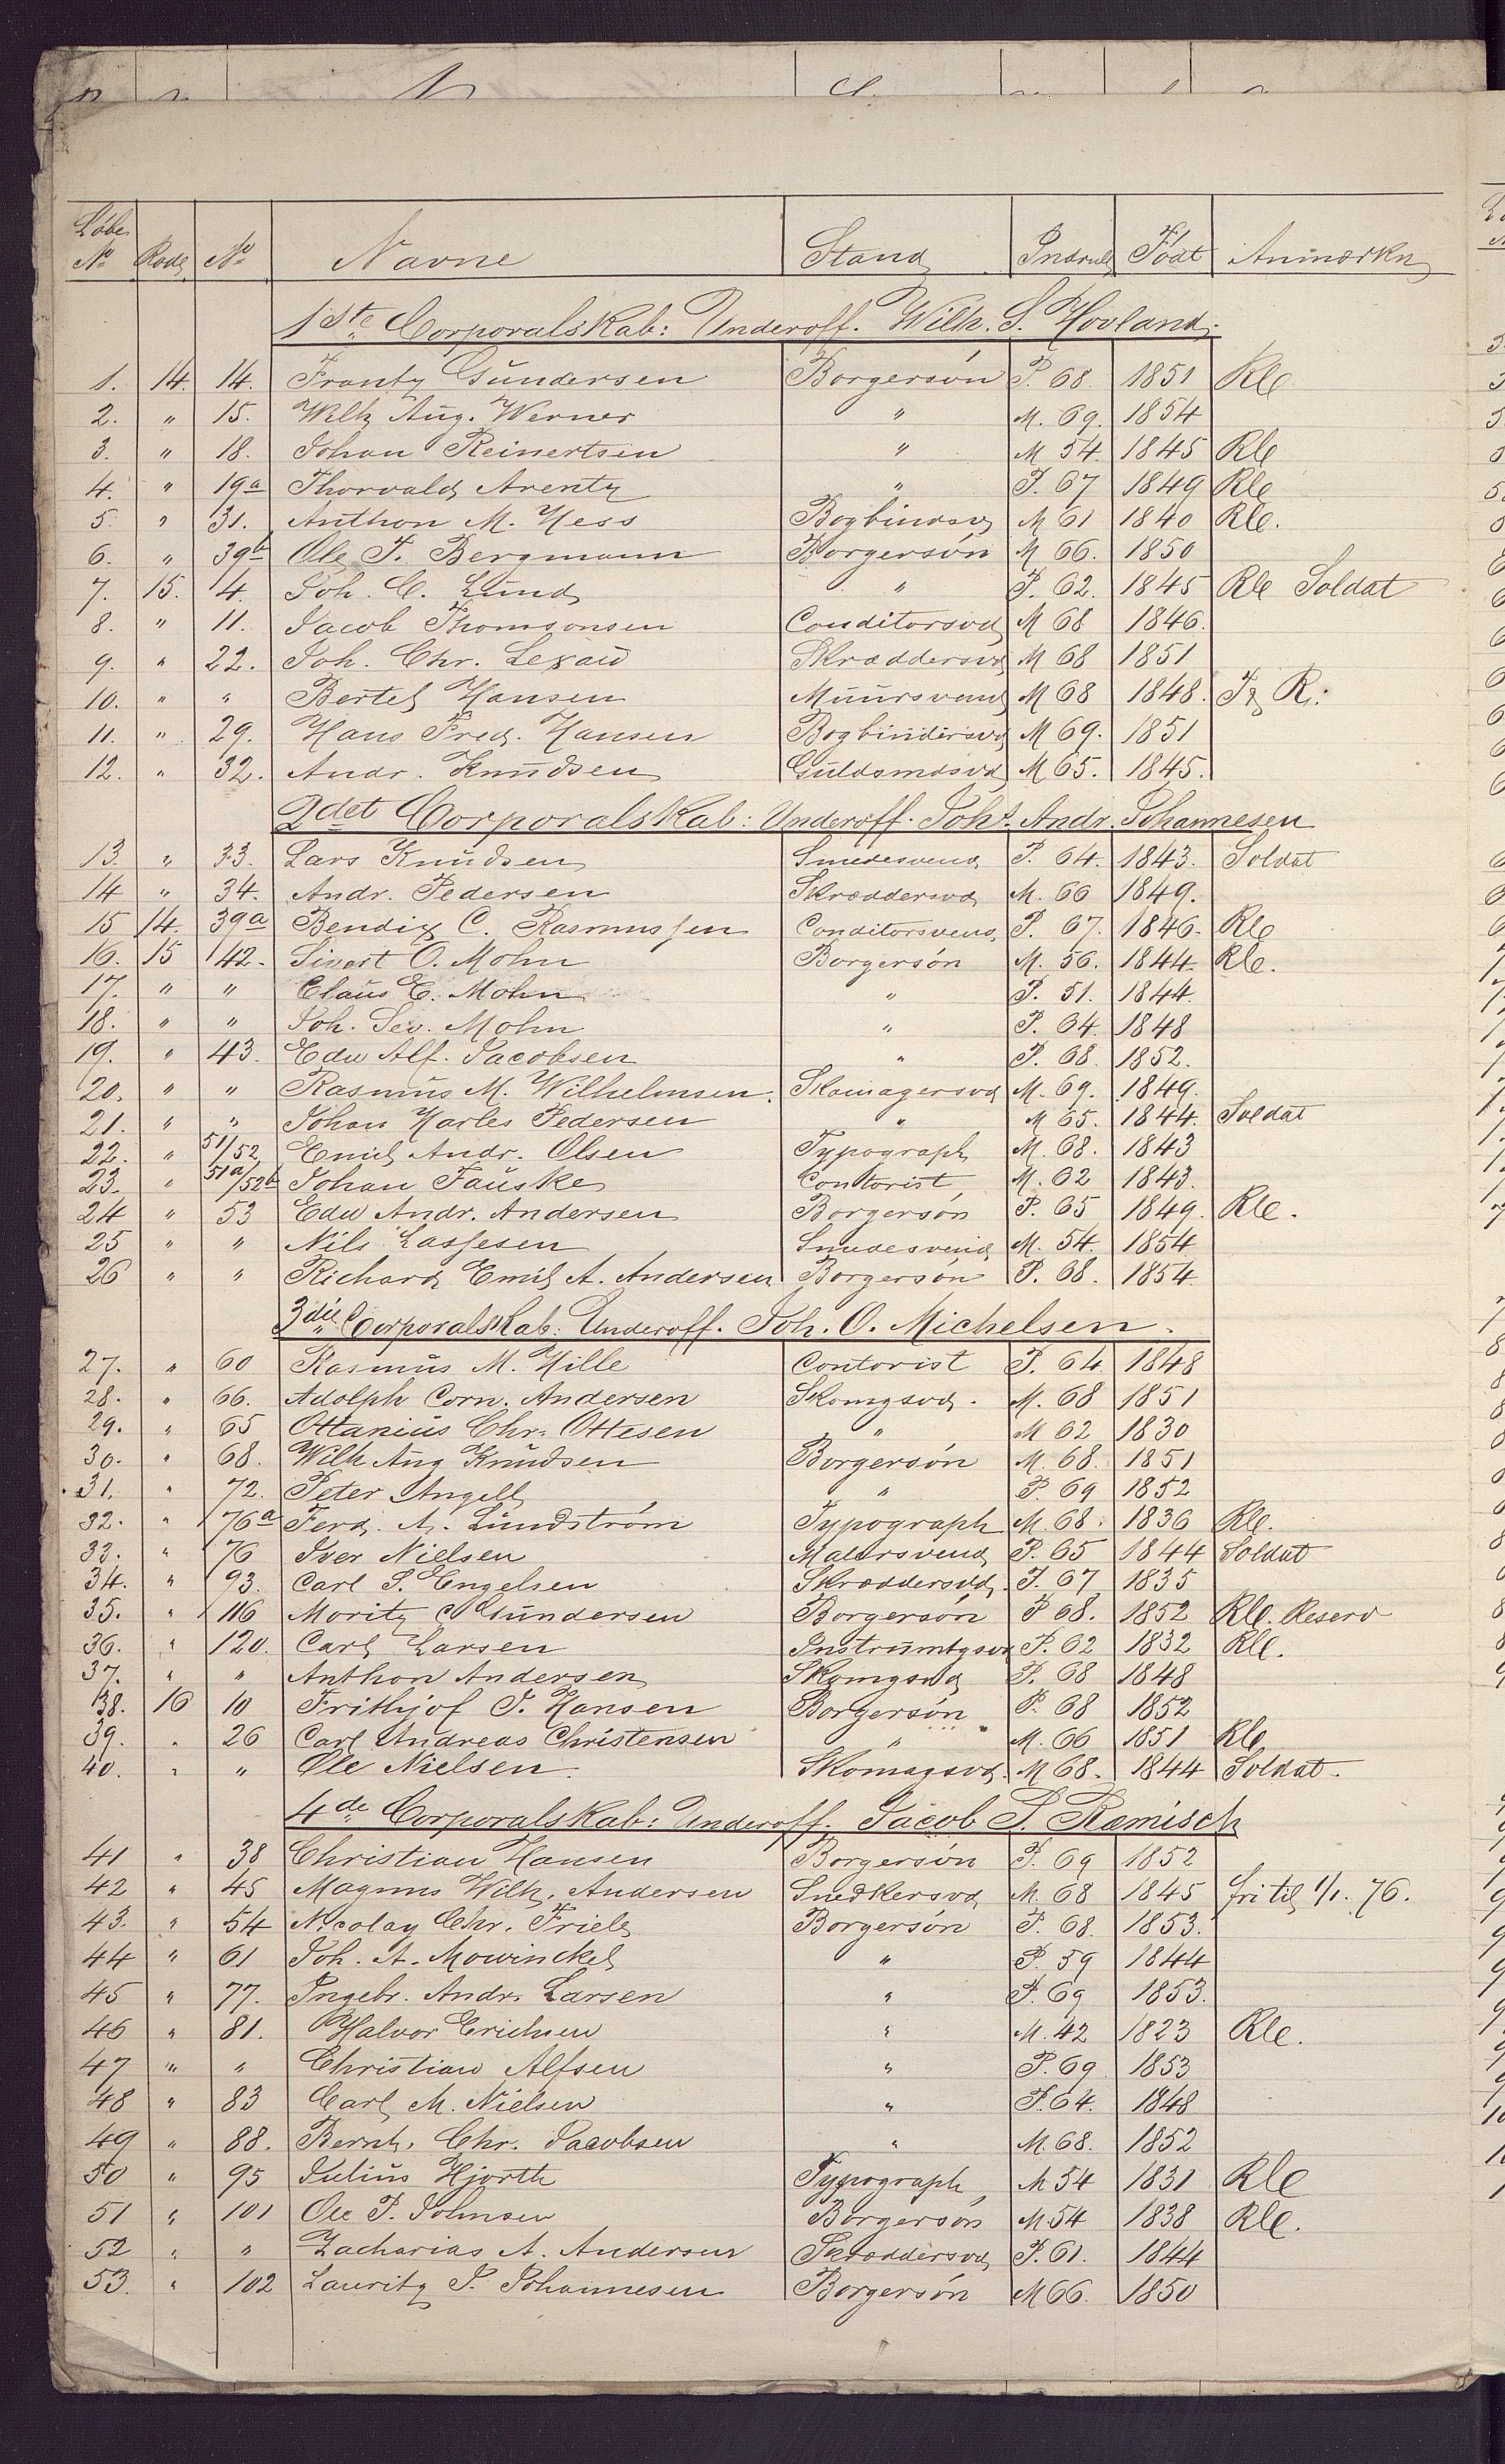 Løbe
No Rode No Navne Stand Indrul Født Anmærkn
1ste Corporalskab: Underoff. Wilh. S. Hovland.
1. 14. 14. Frantz Gundersen Borgersøn P. 68. 1851 Rle
2. " 15. Wilh Aug. Werner " M. 69. 1854
3. " 18. Johan Reinertsen " M 54. 1845 Rle
4. " 19a Thorvald Arentz " P. 67 1849 Rle
5. " 31. Anthon M. Hess Bogbindsv M 61 1840 Rle.
6. " 39b Ole T. Bergmann Borgersøn M 66. 1850
7. 15. 4. Joh. C. Lund " P. 62. 1845 Rle Soldat
8. " 11. Jacob Thomsonsen Conditorsvd M 68 1846.
9. " 22. Joh. Chr. Lexau Skræddersvd M 68 1851
10. " " Bertel Hansen Muursvend M 68 1848. R:
11. " 29. Hans Fred. Hansen Bogbindersvd M 69. 1851
12. " 32. Andr. Knudsen Guldsmdsvd M 65. 1845.
2det Corporalskab: Underoff. Johs. Andr. Johannesen
13. " 33. Lars Knudsen Smedesvend P. 64. 1843. Soldat
14 " 34. Andr. Pedersen Skræddersvd M. 66 1849.
15 14. 39a Bendix C. Rasmussen Conditorsvend, P. 67. 1846. Rle
16. 15 42. Sivert O. Mohn Borgersøn M. 56. 1844. Rle.
17. " " Claus E. Mohn " P. 51. 1844.
18. " " Joh. Sev. Mohn " P. 64. 1848
19. " 43. Edw Alf. Jacobsen " P. 68. 1852.
20. " " Rasmus M. Wilhelmsen. Skomagersvd M. 69. 1849.
21. " " Johan Harles Pedersen " M 65. 1844. Soldat
22. " 51/52 Emil Andr. Olsen Typograph M. 68. 1843
23. " 51a/52b Johan Fauske Contorist, M. 62 1843.
24 " 53 Edw Andr. Andersen Borgersøn P. 65 1849. Rle.
25 " " Nils Lassesen Smedesvend M. 54. 1854
26 " " Richard Emil A. Andersen Borgersøn P. 68. 1854.
3die Corporalskab: Underoff. Joh. O. Michelsen.
27. " 60 Rasmus M. Hille Contorist P. 64. 1848
28. " 66. Adolph Corn. Andersen Skomgsvd. M. 68 1851
29. " 65 Ottanius Chr. Ottesen " M 62 1830
30. " 68. Wilh Aug Knudsen Borgersøn M. 68. 1851
31. " 72. Peter Angell " P. 69 1852
32. " 76a Ferd. A. Lundstrøm Typograph M. 68. 1836 Rle.
33. " 76 Iver Nielsen Malersvend P. 65 1844 Soldat
34. " 93. Carl S. Engelsen Skræddersvd. P. 67 1835
35. " 116 Moritz C Gundersen Borgersøn P 68. 1852 Rle. Reserv
36. " 120. Carl Larsen Instrumtgsvd P. 62 1832 Rle.
37. " " Anthon Andersen Skomgsvd P. 68 1848
38. 16 10 Frithjof J. Hansen Borgersøn P. 68 1852
39. " 26 Carl Andreas Christensen " M. 66 1851 Rle
40. " " Ole Nielsen. Skomagsvd. M 68. 1844 Soldat.
4de Corporalskab: Underoff. Jacob S. Ræmisch
41 " 38 Christian Hansen Borgersøn P. 69 1852
42 " 45 Magnus Wilh. Andersen Snedkersvd M. 68 1845 fri til 1/1. 76.
43. " 54 Nicolay Chr. Friele Borgersøn P. 68. 1853.
44 " 61 Joh. A. Mowinckel " P. 59 1844
45 " 77. Ingebr. Andr. Larsen " P. 69 1853.
46 " 81. Halvor Erichsen " M. 42 1823 Rle.
47 " " Christian Alfsen " P. 69 1853
48 " 83 Carl M. Nielsen " P. 64. 1848
49 " 88. Bernh. Chr. Jacobsen " M. 68. 1852
50 " 95 Julius Hjorth Typograph M 54 1831 Rle
51 " 101 Ole P. Johnsen Borgersøn M 54 1838 Rle.
52 " " Zacharias A. Andersen Skræddersvd P. 61. 1844
53. " 102 Lauritz P. Johannesen Borgersøn M 66. 1850